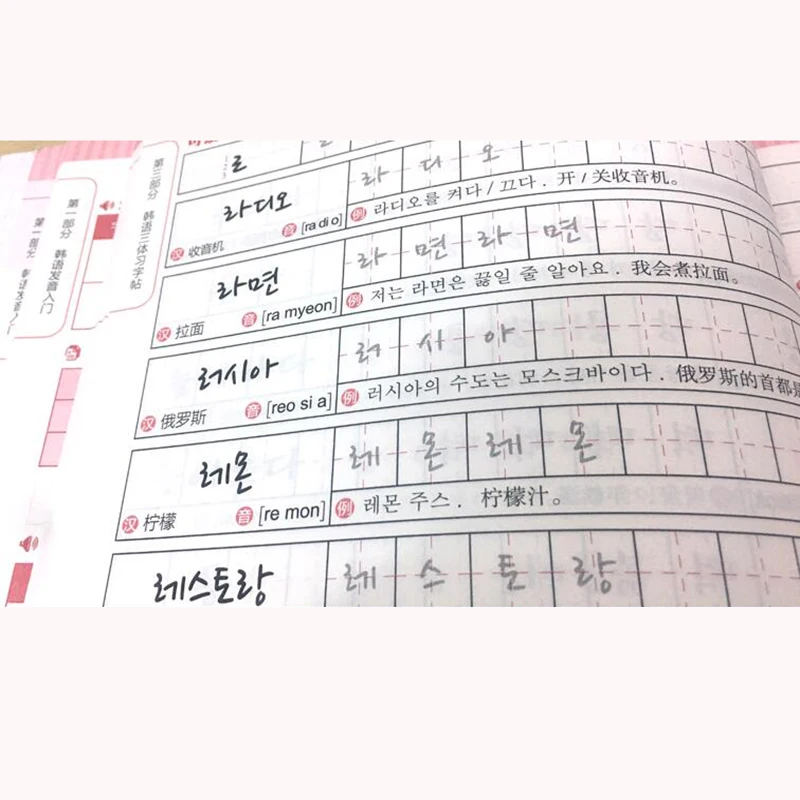 第一部分 韩语发音入门
第三部分 韩语三体习字帖
라디오
汉 收音机 音 [ra di o]
라 디 오
例 라디오를 켜다 / 끄다 . 开 / 关收音机。
라면
汉 拉面 音 [ra myeon]
라 면 라 면
例 저는 라면은 끓일 줄 알아요 . 我会煮拉面。
러시아
汉 俄罗斯 音 [reo si a]
러 시 아
例 러시아의 수도는 모스크바이다 . 俄罗斯的首都是
레몬
汉 柠檬 音 [re mon]
레 몬 레 몬
例 레몬 주스 . 柠檬汁。
레스토랑
레 스 토 랑